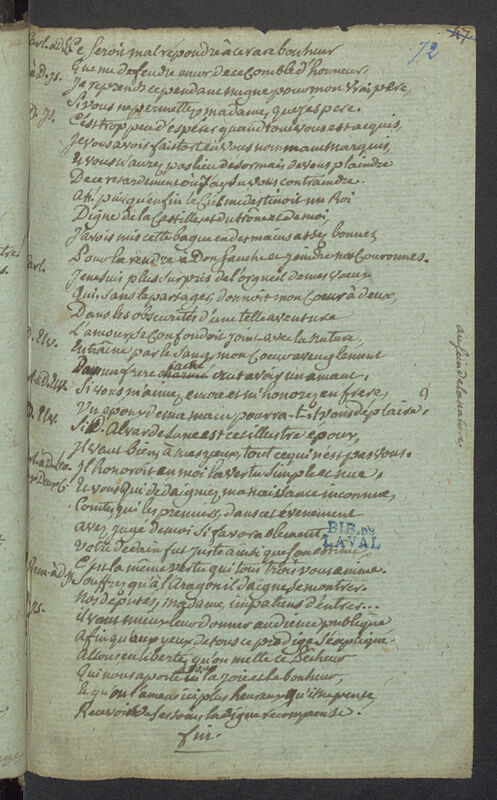 Carl. ad. Ce seroit mal repondre à ce rare bonheur
à D. Is. Que me defendre encor de ce comble d'honneur.
Je reprends cependant mugue pour mon vrai pere,
D. Is. Si vous ne permettez, madame, que j'espere.
C'est trop peu d'espérer quand tout vous est acquis,
Je vous avois fait tort en vous nommant marquis,
Et vous n'aurez pas lieu desormais de vous plaindre
De ce retardement où j'ay su vous contraindre.
Et puisqu'enfin le Ciel me destinoit un Roi
Digne de la Castille, et du trône et de moi
J'avois mis cette bague en des mains assez bonnes
Pour la rendre à Don Sanche et joindre nos Couronnes.
Carl. Je ne suis plus surpris de l'orgueil de mes vœux
Qui, sans le partager, donnoit mon cœur à deux,
Dans les obscurités d'une telle aventure
D. Elv. L'amour se confondoit joint avec la nature.
au sein de la nature
Entrainé par le sang mon Cœur aveuglement
Dans un frere caché crut avoir un amant,
Carl. à d. Elv. Si vous m'aimez encore et m'honorez en frere,
Un epoux de ma main pourra-t-il vous deplaire?
D. Elv. Si D. Alvar de Lune est cet illustre époux,
Il vaut bien, à mes yeux, tout ce qui n'est pas vous.
Il honoroit en moi la vertu simple et nue,
Et vous qui dedaigniez ma naissance inconnue,
Comtes, qui les premiers, dans cet événement
avez jugé de moi si favorablement,
Votre dedain fut juste ainsi que son estime,
C'est la même vertu qui tous trois vous anime.
Souffrez qu'à l'Aragon il daigne se montrer.
Nos députés, madame, impatiens d'entrer...
D. Is. il vaut mieux leur donner audience publique
Afin qu'aux yeux de tous ce prodige s'explique.
Allons, en liberté, qu'on mette le Pêcheur
Qui nous apporte la joie et le bonheur,
Et qu'on l'amene ici plus heureux qu'il ne pense,
Recevoir de ses soins la digne recompense.
fin.
72
47
BIB. DE
LAVAL